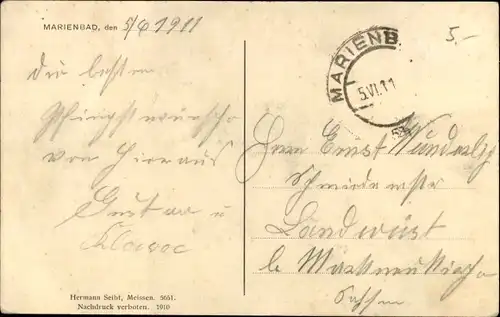 MARIENBAD, den 5/6 1911
Die besten
Pfingstwünsche
von hier aus
Gustav u
MARIENB
5.VI.11
5.-
Herrn Ernst Wunderlich
Schmiedemstr
Landwüst
b Markneukirchen
Sachsen
Hermann Seibt, Meissen. 5651.
Nachdruck verboten. 1910